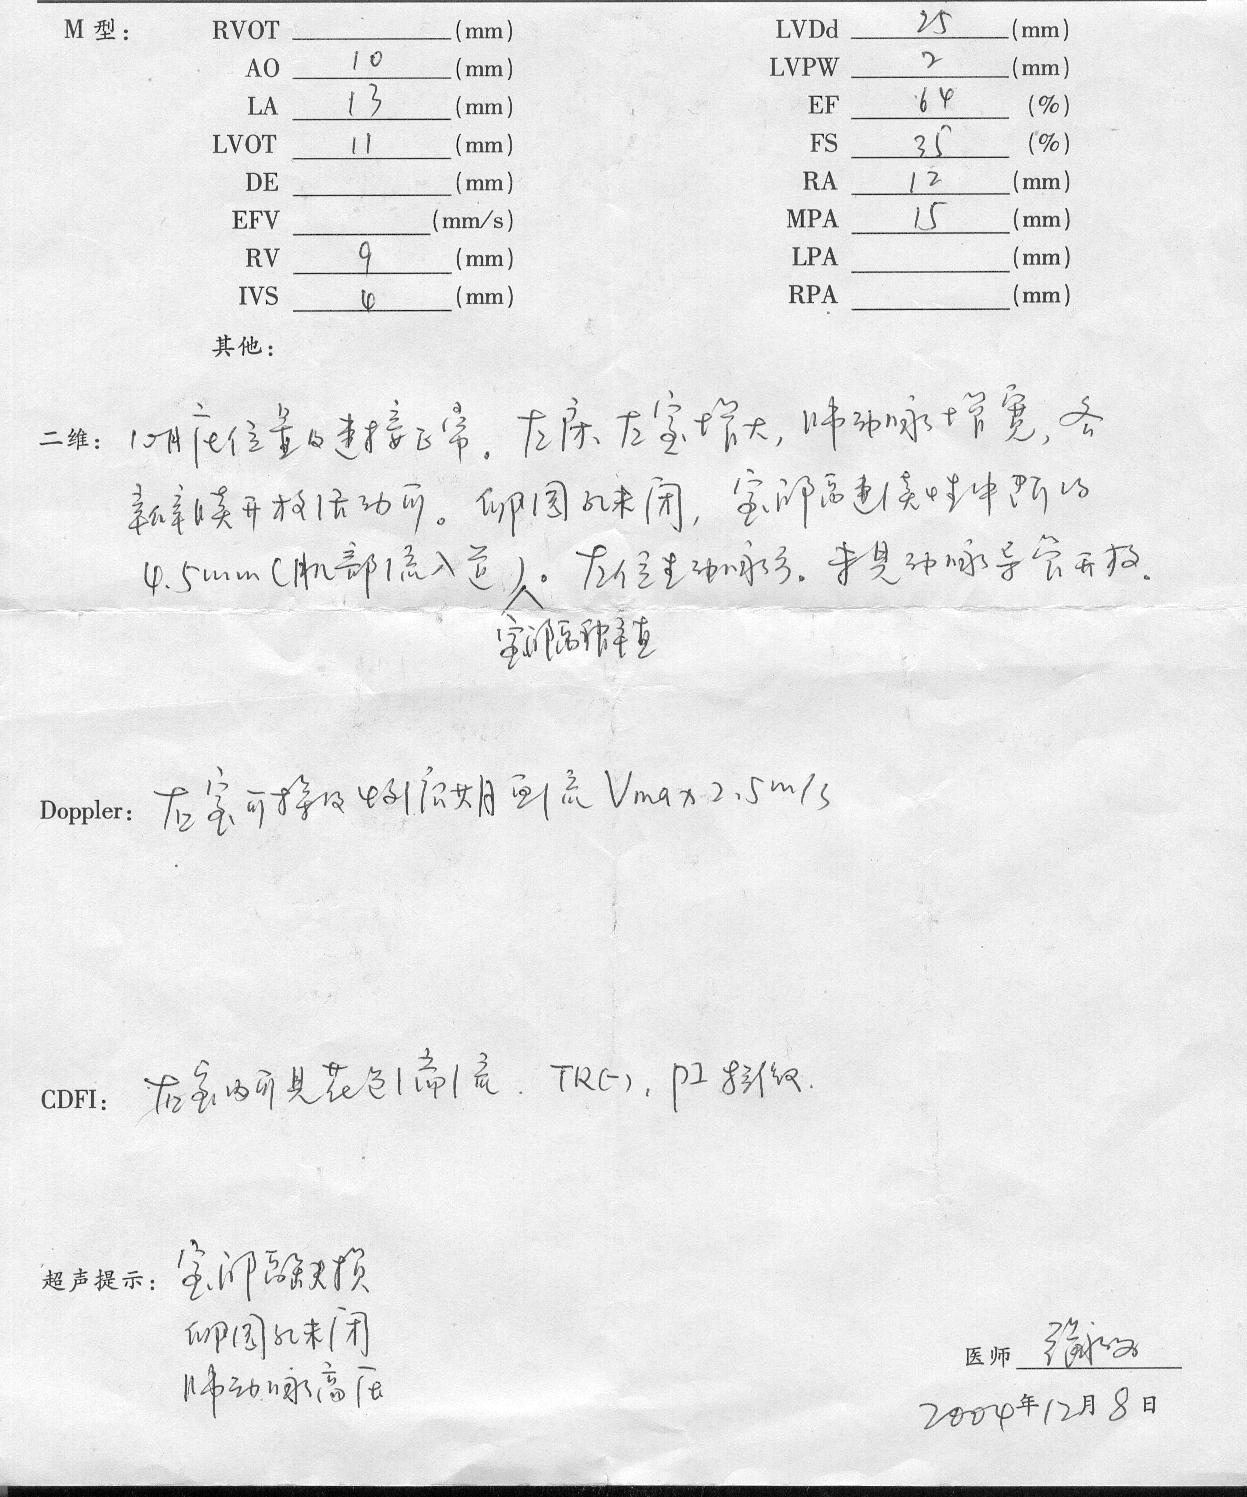 M 型: RVOT (mm) LVDd 25 (mm)
AO 10 (mm) LVPW 2 (mm)
LA 13 (mm) EF 64 (%)
LVOT 11 (mm) FS 35 (%)
DE (mm) RA 12 (mm)
EFV (mm/s) MPA 15 (mm)
RV 9 (mm) LPA (mm)
IVS 4 (mm) RPA (mm)
其他:
二维: 心脏位置及连接正常。左房、左室增大,肺动脉增宽,各
瓣膜开放活动可。卵圆孔未闭,室间隔连续性中断约
4.5mm(肌部流入道)。左位主动脉弓。未见动脉导管开放。
室间隔
Doppler: 右室可探及收缩期 流 Vmax 2.5m/s
CDFI: 右室内可见花色 流. TR(-), PI
超声提示: 室间隔缺损
卵圆孔未闭
肺动脉高压
医师
2004年12月8日